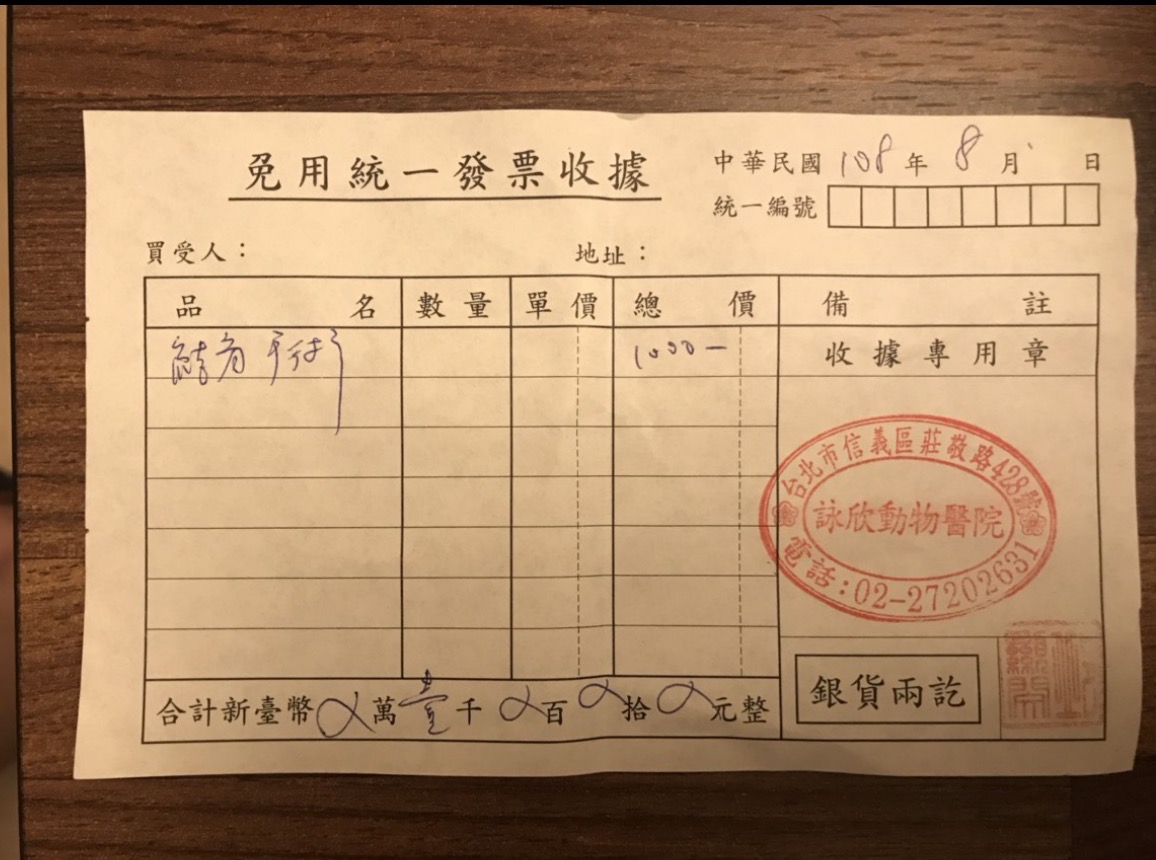 免用統一發票收據
中華民國 108 年 8 月 日
統一編號
買受人： 地址：
品名 數量 單價 總價 備註
手術 1000－ 收據專用章
台北市信義區莊敬路428號
詠欣動物醫院
電話：02-27202631
合計新臺幣 萬 壹 千 百 拾 元整
銀貨兩訖